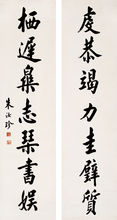 虔恭竭力圭璧質
栖遲㮣志琴書娛
朱汝珍